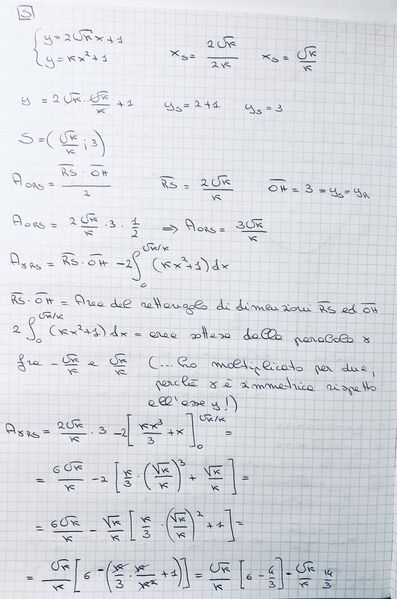 3
{ y = 2√k x + 1
{ y = kx² + 1
x_S = 2√k / 2k   x_S = √k / k
y = 2√k · √k/k + 1   y_S = 2+1   y_S = 3
S = (√k/k ; 3)
A_ORS = RS · OH / 2   RS = 2√k / k   OH = 3 = y_S = y_R
A_ORS = 2√k/k · 3 · 1/2 ⇒ A_ORS = 3√k / k
A_γRS = RS · OH - 2∫₀^(√k/k) (kx²+1) dx
RS · OH = Area del rettangolo di dimensioni RS ed OH
2∫₀^(√k/k) (kx²+1) dx = area sottesa dalla parabola γ
fra - √k/k e √k/k (... ho moltiplicato per due,
perché γ è simmetrica rispetto
all'asse y!)
A_γRS = 2√k/k · 3 - 2[kx³/3 + x]₀^(√k/k) =
= 6√k/k - 2[k/3 · (√k/k)³ + √k/k] =
= 6√k/k - √k/k [k/3 · (√k/k)² + 1] =
= √k/k [6 - (k/3 · k/k² + 1)] = √k/k [6 - 4/3] = √k/k 14/3